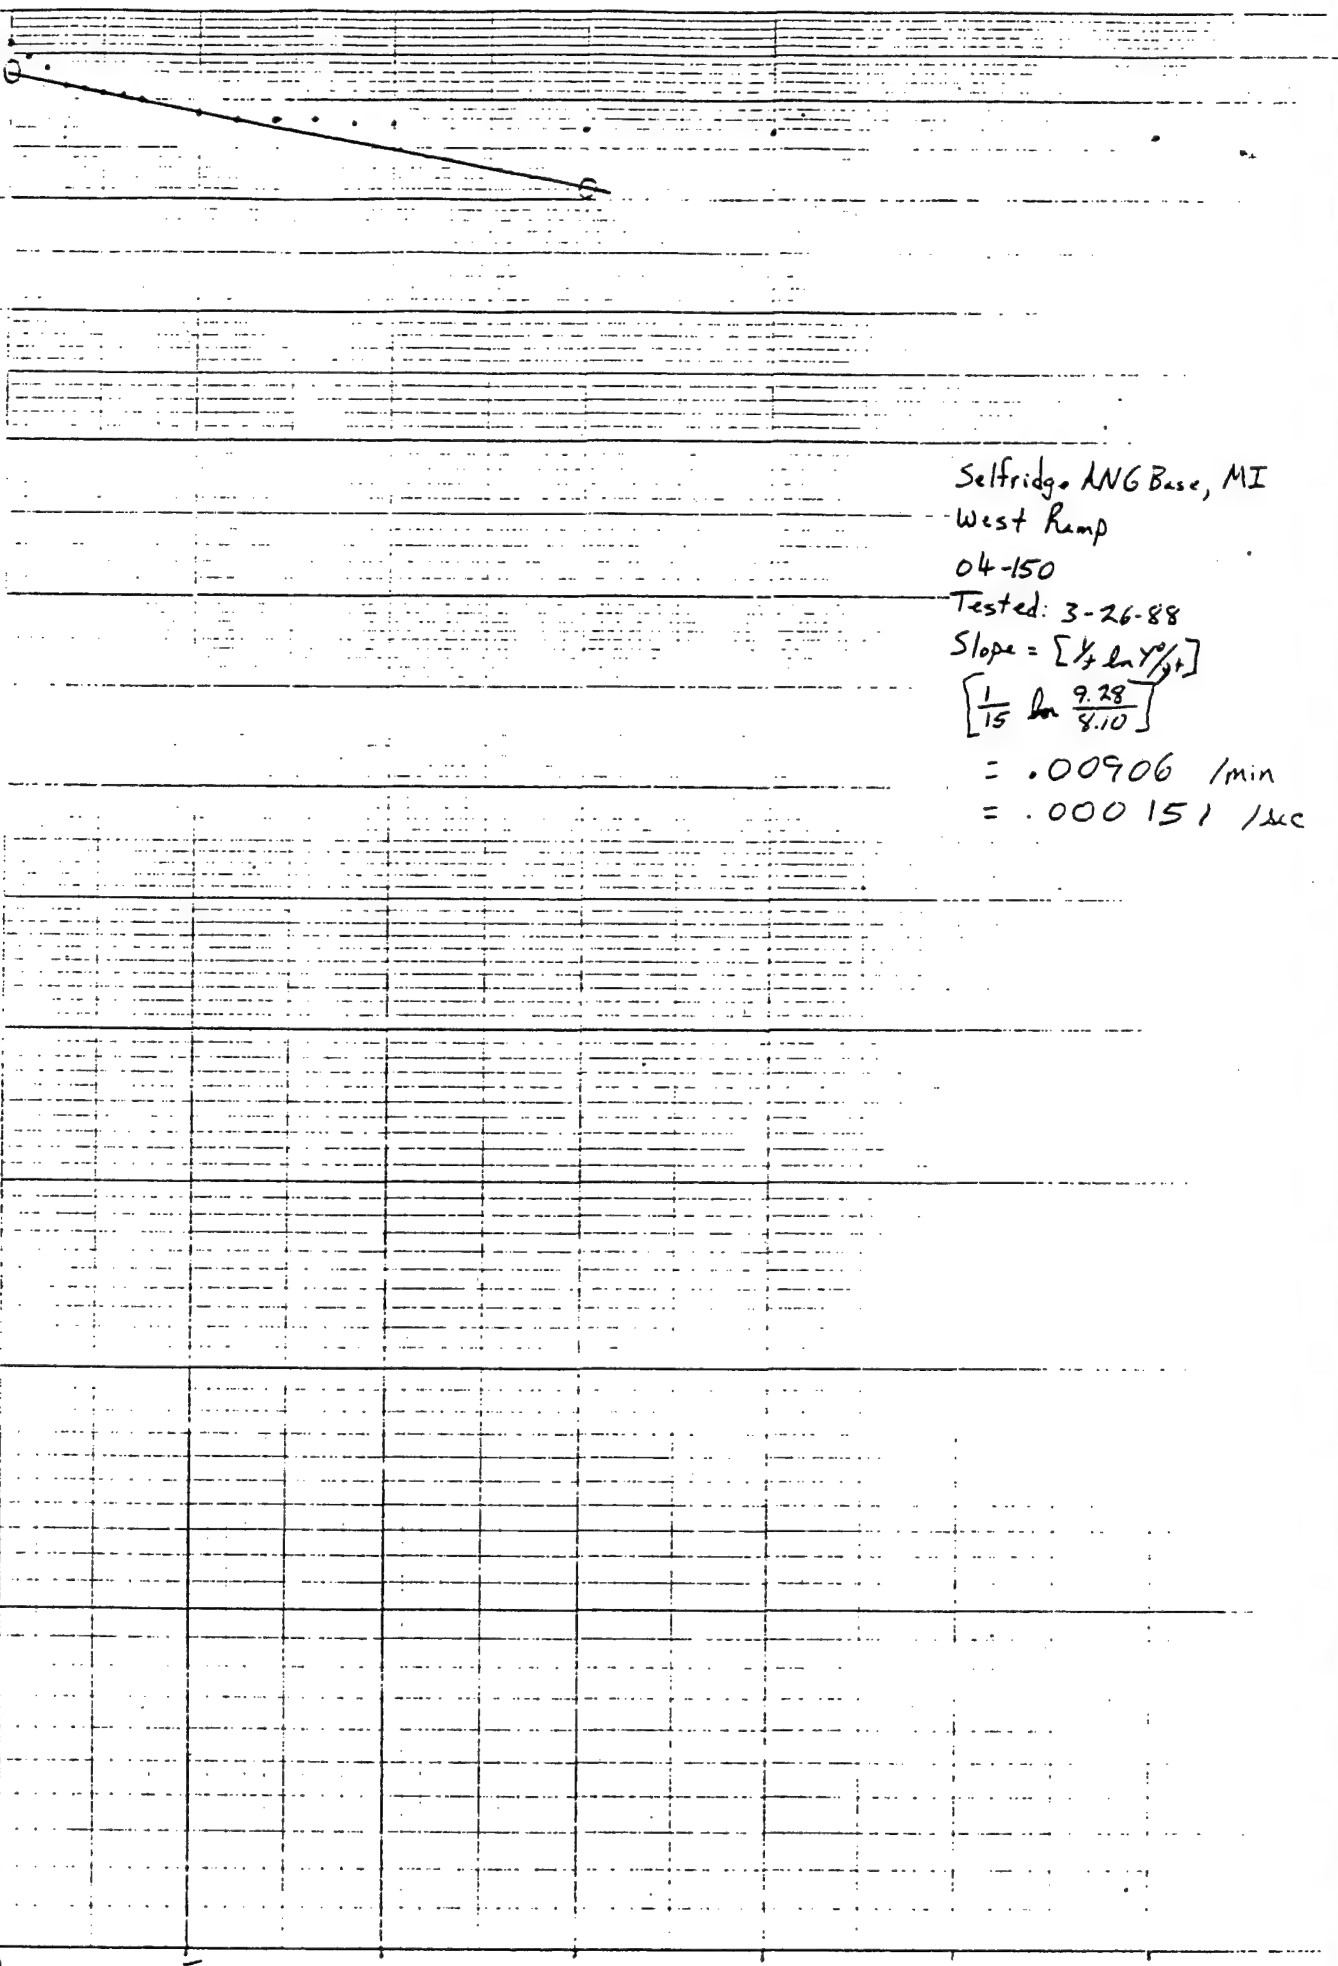 Selfridge ANG Base, MI
West Ramp
04-150
Tested: 3-26-88
Slope = [1/t ln Yo/yt]
[1/15 ln 9.28/8.10]
= .00906 /min
= .000151 /sec